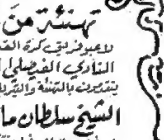 تهنئة من
لاعبو فريق كرة القد
النادي الفيصلي
يتقدمون بالتهنئة والتبريك
الشيخ سلطان ما